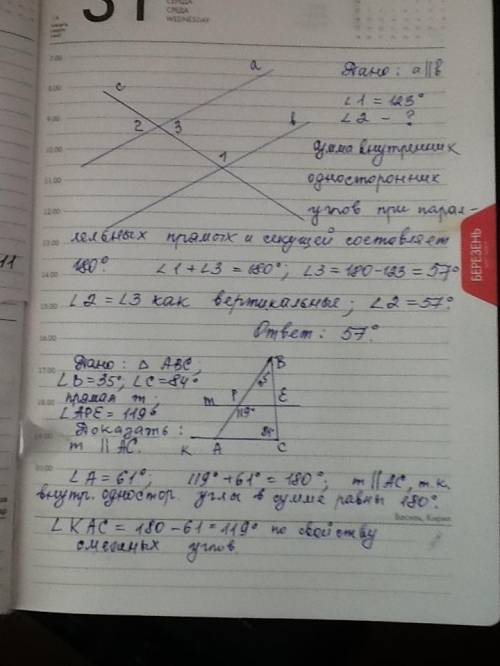 31
СЕРЕДА
СРЕДА
WEDNESDAY
7.00
8.00
9.00
10.00
11.00
12.00
13.00
14.00
15.00
16.00
17.00
18.00
19.00
20.00
a
c
b
2 3
1
Дано: a || b
∠1 = 123°
∠2 - ?
Сумма внутренних
односторонних
углов при парал-
лельных прямых и секущей составляет
180° ∠1 + ∠3 = 180°; ∠3 = 180-123 = 57°
∠2 = ∠3 как вертикальные; ∠2 = 57°.
Ответ: 57°.
БЕРЕЗЕНЬ
11
Дано: △ ABC;
∠B = 35°, ∠C = 84°
прямая m;
∠APE = 119°
Доказать:
m || AC.
B
35
m P E
119°
84
K A C
∠A = 61°; 119° + 61° = 180°; m || AC, т.к.
внутр. одностор. углы в сумме равны 180°.
∠KAC = 180 - 61 = 119° по свойству
смежных углов